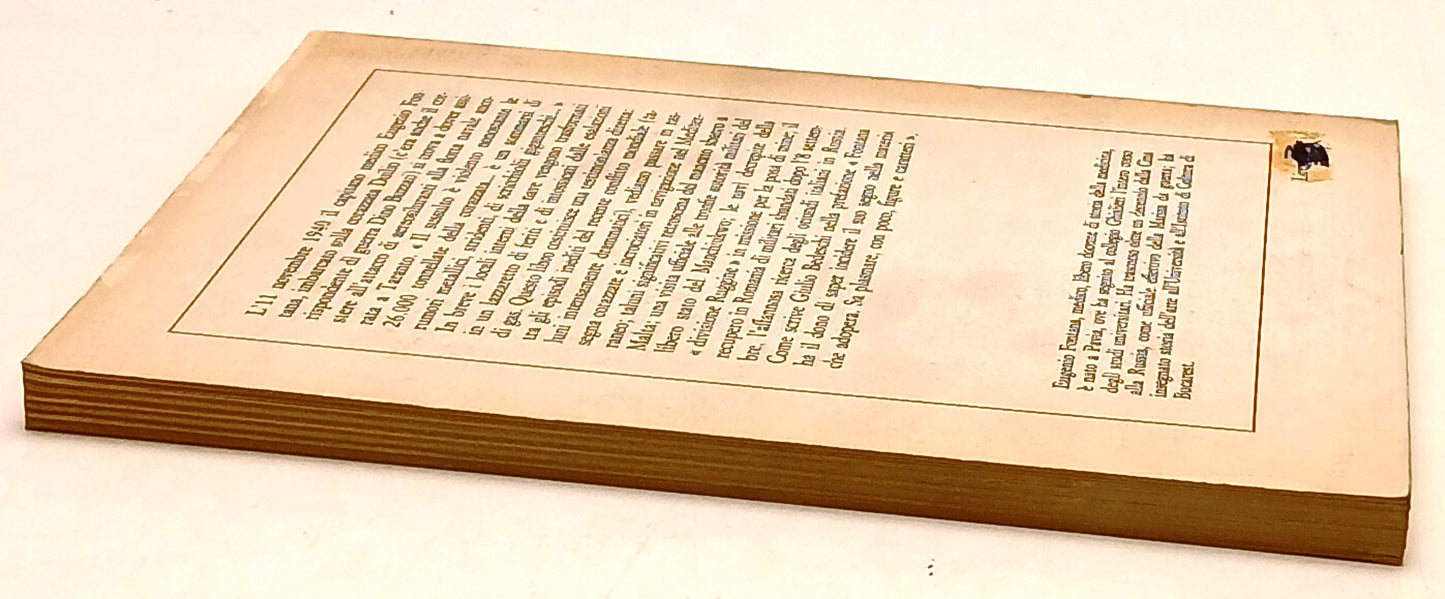 L'11 novembre 1940 il capitano medico Eugenio Fon-
tana, imbarcato sulla corazzata Duilio (c'era anche il cor-
rispondente di guerra Dino Buzzati) si trova a dover assi-
stere all'attacco di aerosiluranti alla flotta navale anco-
rata a Taranto. « Il sussulto è violento: ammontano le
26.000 tonnellate della corazzata... è un sommarsi di
rumori metallici, stridenti, di scricchiolii giganteschi... »
In breve i locali interni della torre vengono trasformati
in un lazzaretto di feriti e di intossicati dalle esalazioni
di gas. Questo libro costituisce una testimonianza diretta:
tra gli episodi inediti del recente conflitto mondiale (ta-
luni intensamente drammatici), vediamo passare in ras-
segna corazzate e incrociatori in navigazione nel Mediter-
raneo; taluni significativi retroscena del mancato sbarco a
Malta; una visita ufficiale alle tronfie autorità militari del
libero stato del Manchukuo; le navi decrepite della
« divisione Ruggine » in missione per la posa di mine; il
recupero in Romania di militari sbandati dopo l'8 settem-
bre, l'affannosa ricerca degli oriundi italiani in Russia.
Come scrive Giulio Bedeschi nella prefazione « Fontana
ha il dono di saper incidere il suo segno nella materia
che adopera. Sa plasmare, con poco, figure e caratteri ».
Eugenio Fontana, medico, libero docente di storia della medicina,
è nato a Pavia, ove ha seguito al collegio Ghislieri l'intero corso
degli studi universitari. Ha trascorso oltre un decennio della Casa
alla Russia, come ufficiale effettivo della Marina da guerra; ha
insegnato storia dell'arte all'Università e all'Istituto di Cultura di
Bucarest.